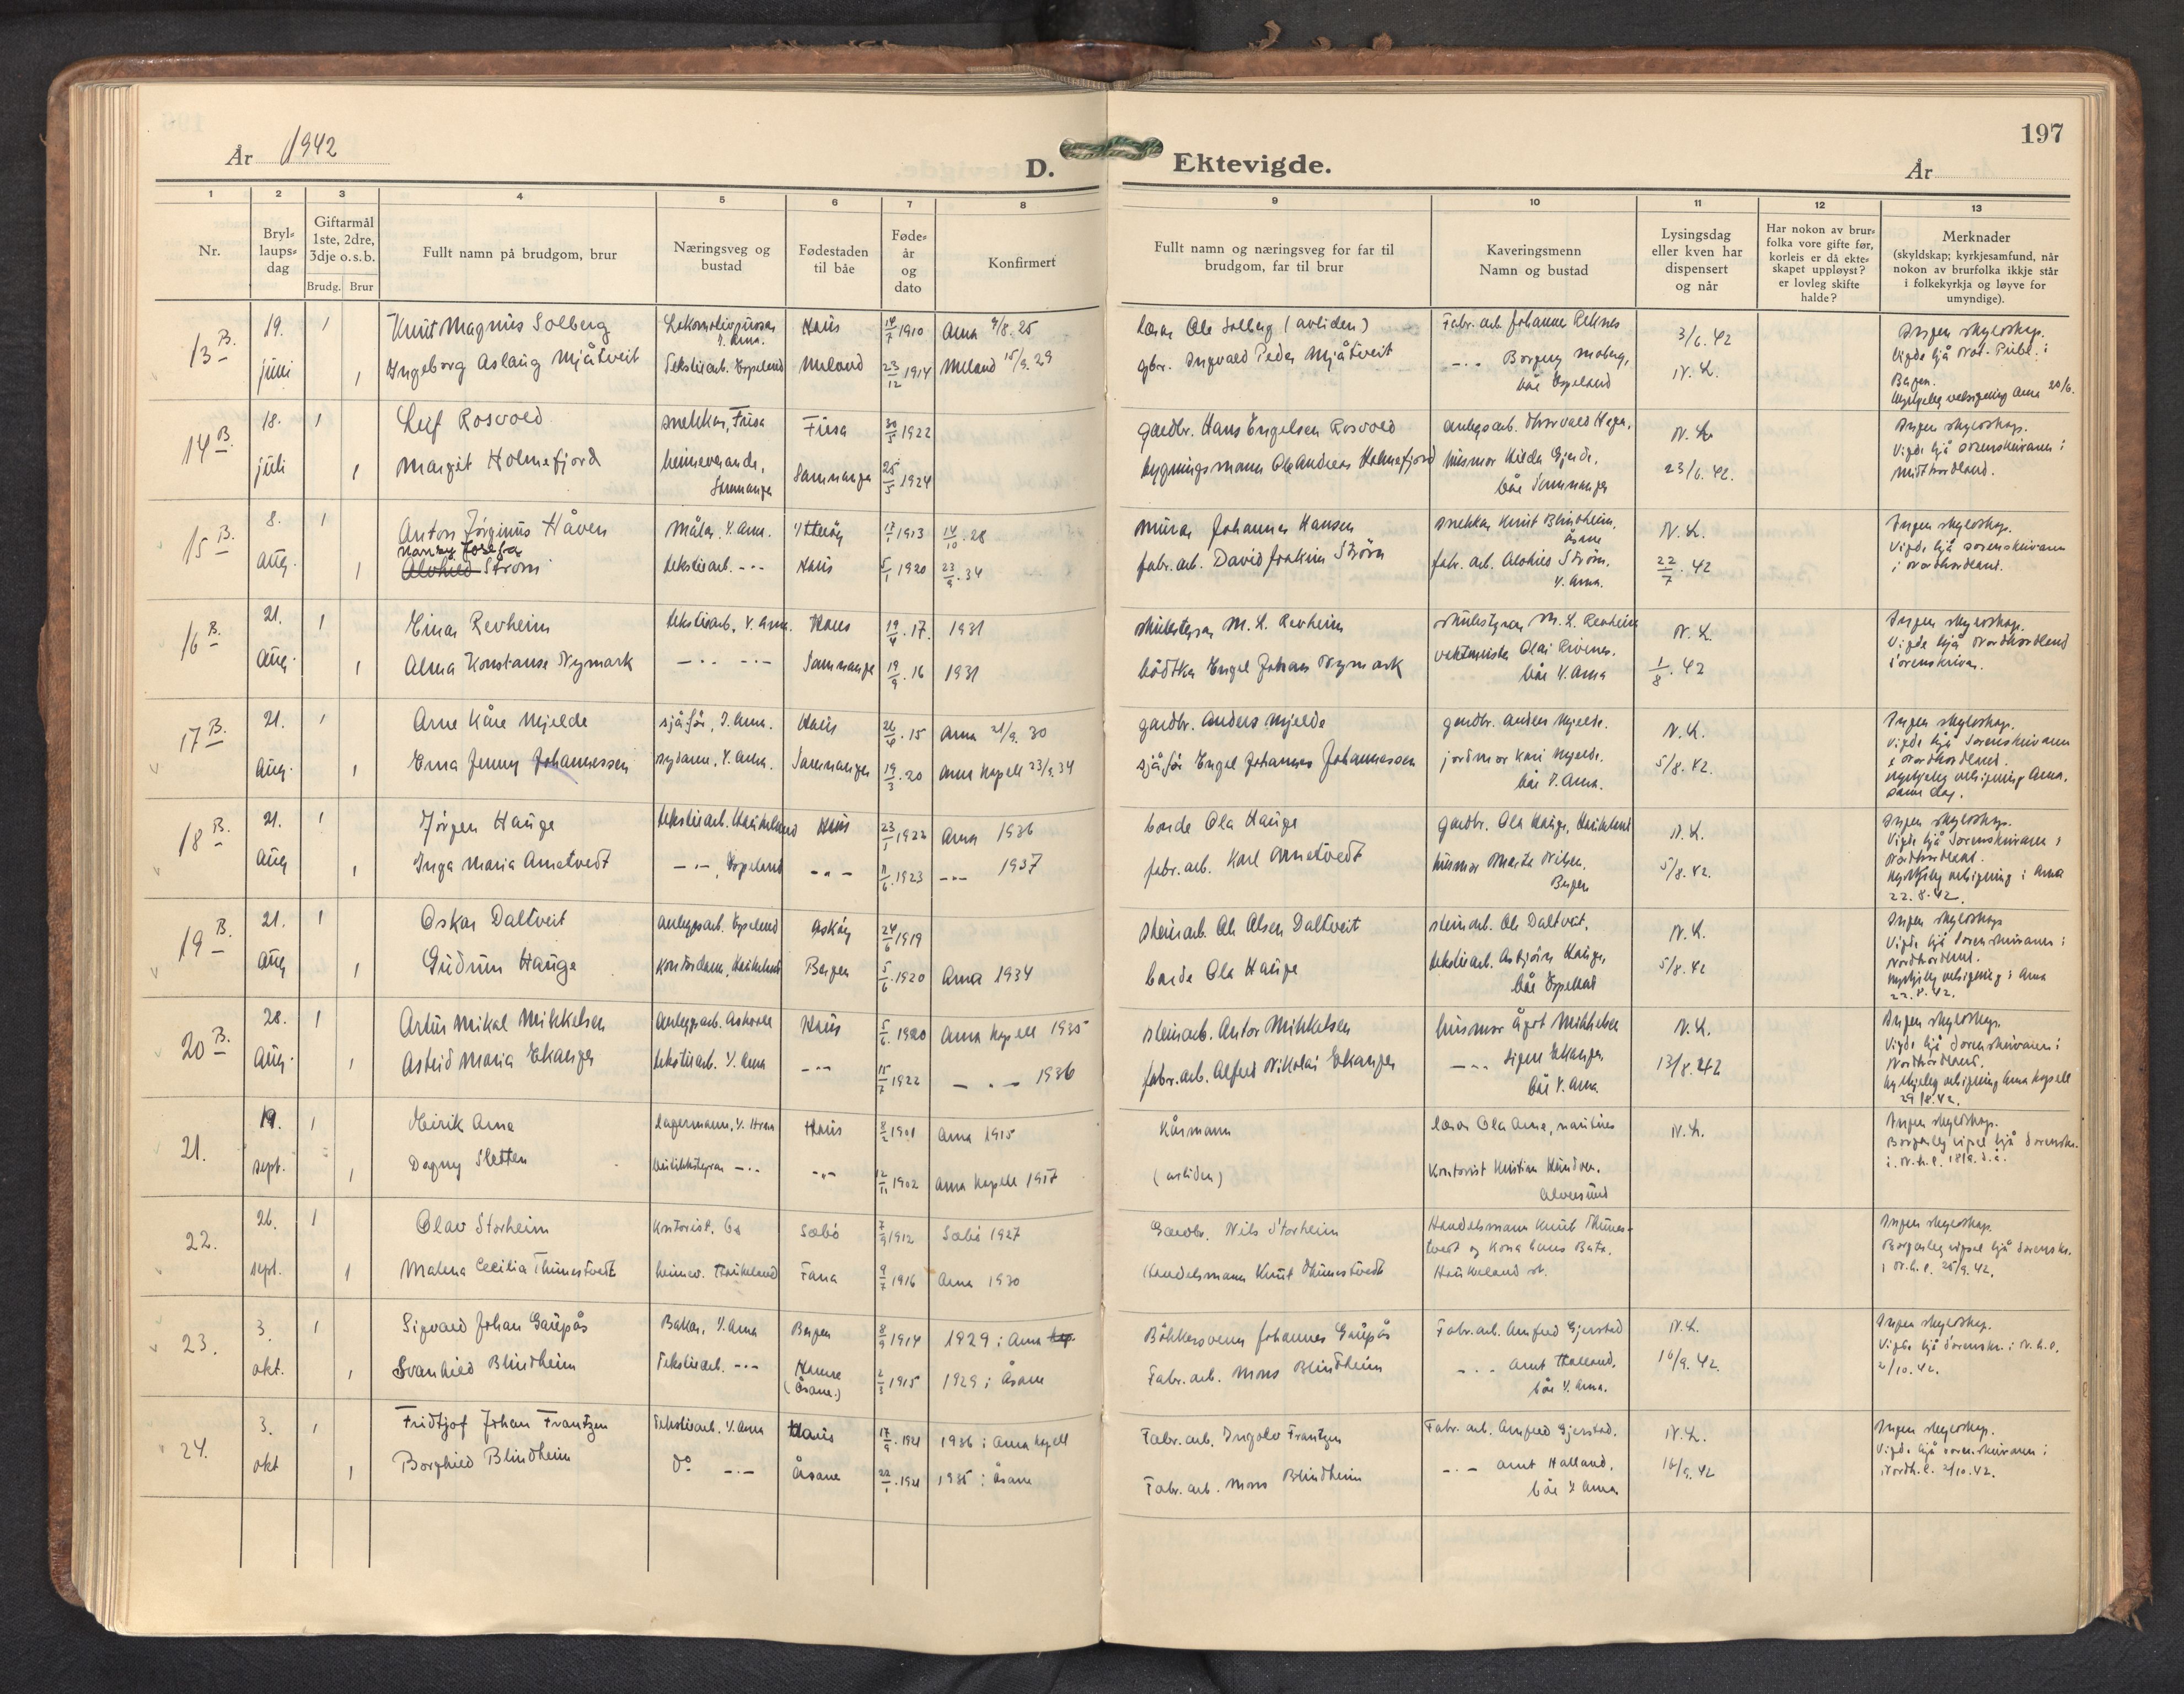 År 1942
D. Ektevigde.
197
År
1 2 3 4 5 6 7 8 9 10 11 12 13
Nr.
Bryl-
laups-
dag
Giftarmål
1ste, 2dre,
3dje o.s.b.
Brudg. Brur
Fullt namn på brudgom, brur
Næringsveg og
bustad
Fødestaden
til båe
Føde-
år
og
dato
Konfirmert
Fullt namn og næringsveg for far til
brudgom, far til brur
Kaveringsmenn
Namn og bustad
Lysingsdag
eller kven har
dispensert
og når
Har nokon av brur-
folka vore gifte før,
korleis er då ekte-
skapet uppløyst?
er lovleg skifte
halde?
Merknader
(skyldskap; kyrkjesamfund, når
nokon av brurfolka ikkje står
i folkekyrkja og løyve for
umyndige).
13 B. 19. 1 Knut Magnus Solberg Haus 14/7 1910 Arna 9/8. 25 Ole Solberg (avliden) Fabr. arb. Johanne 3/6. 42 Ingen skyldskap.
juni 1 Ingeborg Aslaug Mjåtveit Tekstilarb. Espeland Meland 23/12 1914 Meland 15/9. 29 gbr. Ingvald Peder Mjåtveit -.- Borgny Moberg, N. L. Vigde hjå
båe Espeland Bergen.
Kyrkjeleg velsigning Arna 20/6.
14 B. 18. 1 Leif Rosvold snekkar, Fusa Fusa 30/5 1922 gardbr. Hans Engelsen Rosvold anlegsarb. Thorvald N. L. Ingen skyldskap.
juli 1 Margit Holmefjord heimeverande, Samnanger 25/5 1924 bygningsmann Ola Andreas Holmefjord husmor Hilda Gjerde, 23/6. 42. Vigde hjå sorenskrivaren i
Samnanger båe Samnanger Midthordland.
15 B. 8. 1 Anton Jørginus Håven Målar, Y. Arna. Ytterøy 17/7 1913 14/10. 28 murar Johannes Hansen snekkar Knut Blindheim, N. L. Ingen skyldskap.
Nanny Josefa Åsane
aug. 1 Alvhild Strøm tekstilarb. -.- Haus 5/1 1920 23/9. 34 fabr. arb. David Joakim Strøm fabr. arb. Alvhild Strøm. 22/7. 42 Vigde hjå sorenskrivaren
Y. Arna. i Nordhordland.
16 B. 21. 1 Einar Revheim tekstilarb. Y. Arna. Haus 19/4. 17. 1931 skulestyrar M. L. Revheim skulestyrar M. L. Revheim N. L. Ingen skyldskap.
aug. 1 Alma Konstanse Nymark -.- -.- Samnanger 19/9. 16 1931 bødtkar Engel Johan Nymark vektmeister Olai 1/8. 42 Vigde hjå Nordhordland
båe Y. Arna sorenskrivar.
17 B. 21. 1 Arne Kåre Mjelde sjåfør, Y. Arna. Haus 26/4. 15 Arna 21/9. 30 gardbr. Anders Mjelde gardbr. Anders Mjelde. N. L. Ingen skyldskap.
aug. 1 Erna Jenny Johannessen sydame, Y. Arna. Samnanger 19/3. 20 Arna Kapell 23/9. 34 sjåfør Engel Johannes Johannessen jordmor Kari Mjelde. 5/8. 42. Vigde hjå Sorenskrivaren
båe Y. Arna. i Nordhordland.
Kyrkjeleg velsigning Arna,
same dag.
18 B. 21. 1 Jørgen Hauge tekstilarb. Haukeland Haus 23/1 1922 Arna 1936 bonde Ola Hauge gardbr. Ola Hauge, Haukeland N. L. Ingen skyldskap.
aug 1 Inga Maria Arnetvedt -.-, Espeland -.- 11/6. 1923 -.- 1937 fabr. arb. Karl Arnetvedt husmor Marta Nilsen, 5/8. 42. Vigde hjå Sorenskrivaren i
Bergen Nordhordland.
Kyrkjeleg velsigning i Arna
22. 8. 42.
19 B. 21. 1 Oskar Daltveit anleggsarb. Espeland Askøy 24/6 1919 steinarb. Ole Olsen Daltveit steinarb. Ole Daltveit, N. L. Ingen skyldskap
aug 1 Gudrun Hauge kontordame, Haukeland Bergen 5/6. 1920 Arna 1934 bonde Ola Hauge tekstilarb. Asbjørn Hauge, 5/8. 42 Vigde hjå Sorenskrivaren i
båe Espeland Nordhordland.
Kyrkjeleg velsigning i Arna
22. 8. 42.
20 B. 28. 1 Artur Mikal Mikkelsen Anleggsarb. Haus 5/6. 1920 Arna Kapell 1935 steinarb. Anton Mikkelsen husmor Ågot Mikkelsen N. L. Ingen skyldskap.
aug. 1 Astrid Maria Ekanger tekstilarb. Y. Arna -.- 15/7 1922 -.- 1936 fabr. arb. Alfred Nikolai Ekanger -.- Signe Ekanger. 13/8. 42 Vigde hjå Sorenskrivaren i
båe Y. Arna Nordhordland.
Kyrkjeleg velsigning Arna Kapell
29/8. 42.
21. 19. 1 Eirik Arna Lagermann, Y. Arna Haus 8/2 1901 Arna 1915 Kårmann Ola Arna, N. L. Ingen skyldskap.
sept. 1 Dagny Sletten -.- -.- 12/11 1902 Arna Kapell 1917 (avliden) Kontorist Kristian Borgarleg vigsel hjå Sorenskr.
Alversund i N. h. l. 18/9. d. å.
22. 26. 1 Olav Storheim Kontorist. Sæbø 7/9 1912 Sæbø 1927 Gardbr. Nils Storheim Handelsmann Knut Thunes- Ingen skyldskap.
tvedt og Kona hans Borgarleg vigsel hjå Sorenskr.
sept. 1 Malena Cecilia Thunestvedt heimev. Haukeland Fana 9/7 1916 Arna 1930 Handelsmann Knut Thunestvedt Haukeland st. i N. h. l. 25/9. 42.
23. 3. 1 Sigvald Johan Gaupås Bakar, Y. Arna Bergen 8/9 1914 1929 i Arna Bøkkersvenn Johannes Gaupås Fabr. arb. Arnfred Gjerstad N. L. Ingen skyldskap.
okt. 1 Svanhild Blindheim Tekstilarb. -.- Hamre 2/3 1915 1929 i Åsane Fabr. arb. Mons Blindheim -.- Arnt Halland. 16/9. 42. Vigde hjå Sorenskr. i N. h. l.
(Åsane.) båe Y. Arna. 2/10. 42.
24. 3. 1 Fridtjof Johan Frantzen Tekstilarb. Y. Arna Haus 17/9. 1921 1936 i Arna Kapell Fabr. arb. Ingolv Frantzen Fabr. arb. Arnfred Gjerstad. N. L. Ingen skyldskap.
okt 1 Borghild Blindheim Do -.- Åsane 22/1. 1921 1935 i Åsane Fabr. arb. Mons Blindheim -.- Arnt Halland. 16/9. 42 Vigde hjå sorenskrivaren i
båe Y. Arna Nordh. l. 2/10. 42.